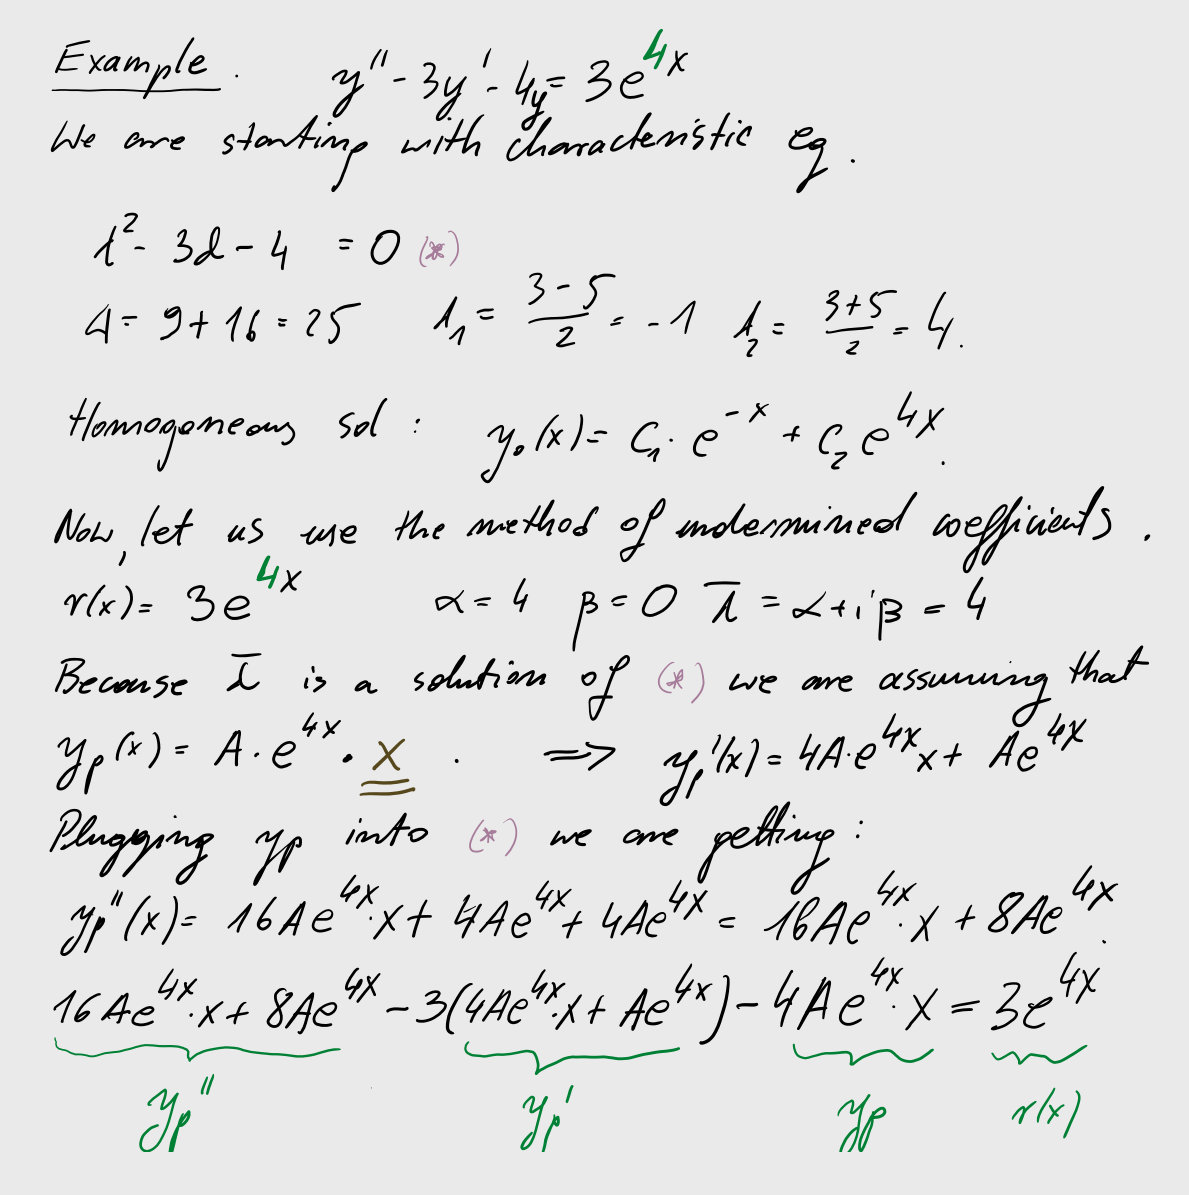 Example. y'' - 3y' - 4y = 3e^{4x}
We are starting with characteristic eq.
λ² - 3λ - 4 = 0 (*)
Δ = 9 + 16 = 25 λ₁ = (3 - 5)/2 = -1 λ₂ = (3+5)/2 = 4.
Homogoneous sol : y₀(x) = C₁ · e^{-x} + C₂ e^{4x}.
Now, let us use the method of undermined coefficients.
r(x) = 3e^{4x} α = 4 β = 0 λ̄ = α + iβ = 4
Because λ̄ is a solution of (*) we are assuming that
yₚ(x) = A · e^{4x} · x . ⟹ yₚ'(x) = 4A·e^{4x} x + Ae^{4x}
Plugging yp into (*) we are getting :
yₚ''(x) = 16Ae^{4x}·x + 4Ae^{4x} + 4Ae^{4x} = 16Ae^{4x}·x + 8Ae^{4x}.
16Ae^{4x}·x + 8Ae^{4x} - 3(4Ae^{4x}·x + Ae^{4x}) - 4Ae^{4x}·x = 3e^{4x}
yₚ'' yₚ' yₚ r(x)